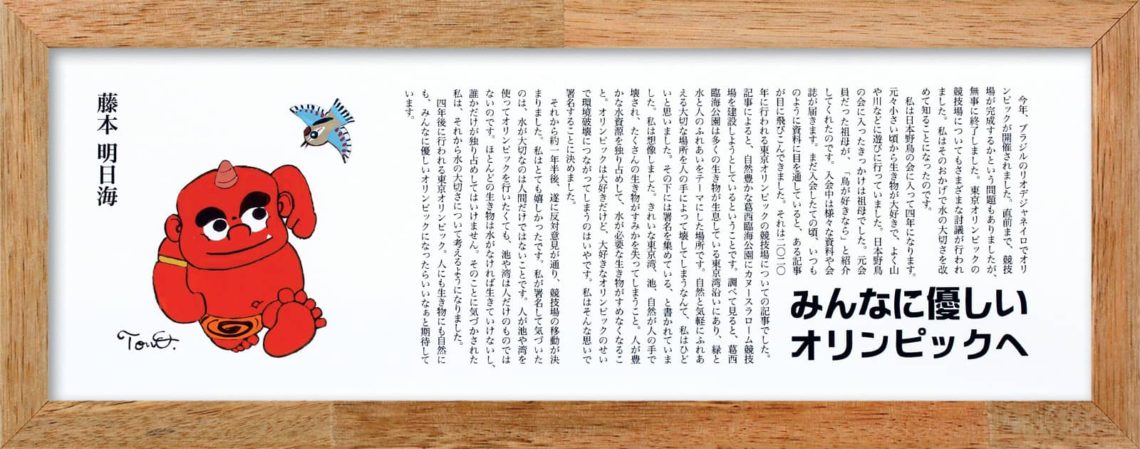 みんなに優しい
オリンピックへ
今年、ブラジルのリオデジャネイロでオリ
ンピックが開催されました。直前まで、競技
場が完成するかという問題もありましたが、
無事に終了しました。東京オリンピックの
競技場についてもさまざまな討議が行われ
ました。私はそのおかげで水の大切さを改
めて知ることになったのです。
私は日本野鳥の会に入って四年になります。
元々小さい頃から生き物が大好きで、よく山
や川などに遊びに行っていました。日本野鳥
の会に入ったきっかけは祖母でした。元会
員だった祖母が、「鳥が好きなら」と紹介
してくれたのです。入会中は様々な資料や会
誌が届きます。まだ入会したての頃、いつも
のように資料に目を通していると、ある記事
が目に飛びこんできました。それは二〇二〇
年に行われる東京オリンピックの競技場についての記事でした。
記事によると、自然豊かな葛西臨海公園にカヌースラローム競技
場を建設しようとしているということです。調べて見ると、葛西
臨海公園は多くの生き物が生息している東京湾沿いにあり、緑と
水と人のふれあいをテーマにした場所です。自然と気軽にふれあ
える大切な場所を人の手によって壊してしまうなんて、私はひど
いと思いました。その下には署名を集めている、と書かれていま
した。私は想像しました。きれいな東京湾、池、自然が人の手で
壊され、たくさんの生き物がすみかを失ってしまうこと。人が豊
かな水資源を独り占めして、水が必要な生き物がすめなくなるこ
と。オリンピックは大好きだけど、大好きなオリンピックのせい
で環境破壊につながってしまうのはいやです。私はそんな思いで
署名することに決めました。
それから約一年半後、遂に反対意見が通り、競技場の移動が決
まりました。私はとても嬉しかったです。私が署名して気づいた
のは、水が大切なのは人間だけではないことです。人が池や湾を
使ってオリンピックを行いたくても、池や湾は人だけのものでは
ないのです。ほとんどの生き物は水がなければ生きていけないし、
誰かだけが独り占めしてはいけません。そのことに気づかされた
私は、それから水の大切さについて考えるようになりました。
四年後に行われる東京オリンピック。人にも生き物にも自然に
も、みんなに優しいオリンピックになったらいいなぁと期待して
います。
藤本 明日海